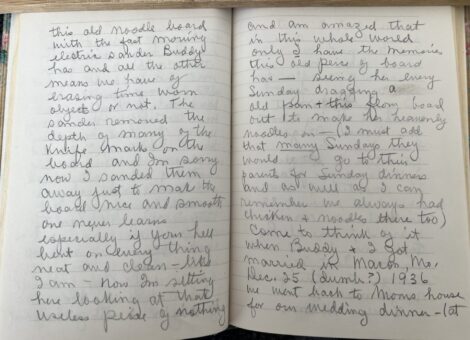 this old noodle board
with the fast moving
electric sander Buddy
has and all the other
means we have of
erasing time worn
object or not. The
sander removed the
depth of many of the
knife marks on the
board and I'm sorry
now I sanded them
away just to make the
board nice and smooth
one never learns
especially if your hell
bent on every thing
neat and clean - like
I am - now I'm sitting
here looking at that
useless piece of nothing
and am amazed that
in this whole world
only I have the memories
this old piece of board
has — seeing her every
Sunday dragging a
old pan + this flour board
out to make her heavenly
noodles on — (I must add
that many Sundays they
would go to their
parents for Sunday dinners
and as well as I can
remember we always had
chicken + noodles there too)
Come to think of it
when Buddy + I got
married in Macon, Mo.
Dec. 25 (dumb?) 1936
we went back to Moms house
for our wedding dinner - (at